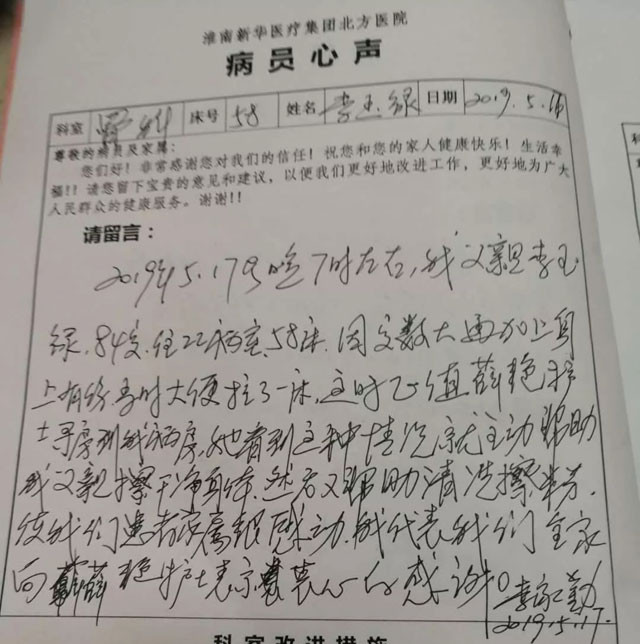 淮南新华医疗集团北方医院
病员心声
科室 骨科 床号 58 姓名 李玉绿 日期 2019.5.16
尊敬的病员及家属:
您们好!非常感谢您对我们的信任!祝您和您的家人健康快乐!生活幸
福!!请您留下宝贵的意见和建议,以便我们更好地改进工作,更好地为广大
人民群众的健康服务。谢谢!!
请留言:
2019年5.17号晚7时左右,我父亲李玉
绿.84岁.住22病室.58床.因岁数大再加上身
上有伤 时大便拉了一床,这时正值薛艳护
士寻房到我病房,她看到这种情况就主动帮助
我父亲擦干净身体.然后又帮助清洗擦
使我们患者家属很感动.我代表我们全家
向薛艳护士表示衷心的感谢。李家勤
2019.5.17.
科室改进措施